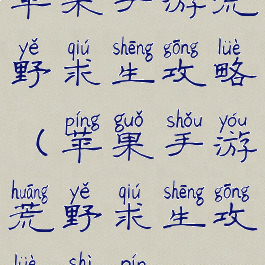 苹果手游荒
yě qiú shēng gōng lüè
野求生攻略
píng guǒ shǒu yóu
(苹果手游
huāng yě qiú shēng gōng
荒野求生攻
lüè shì pín